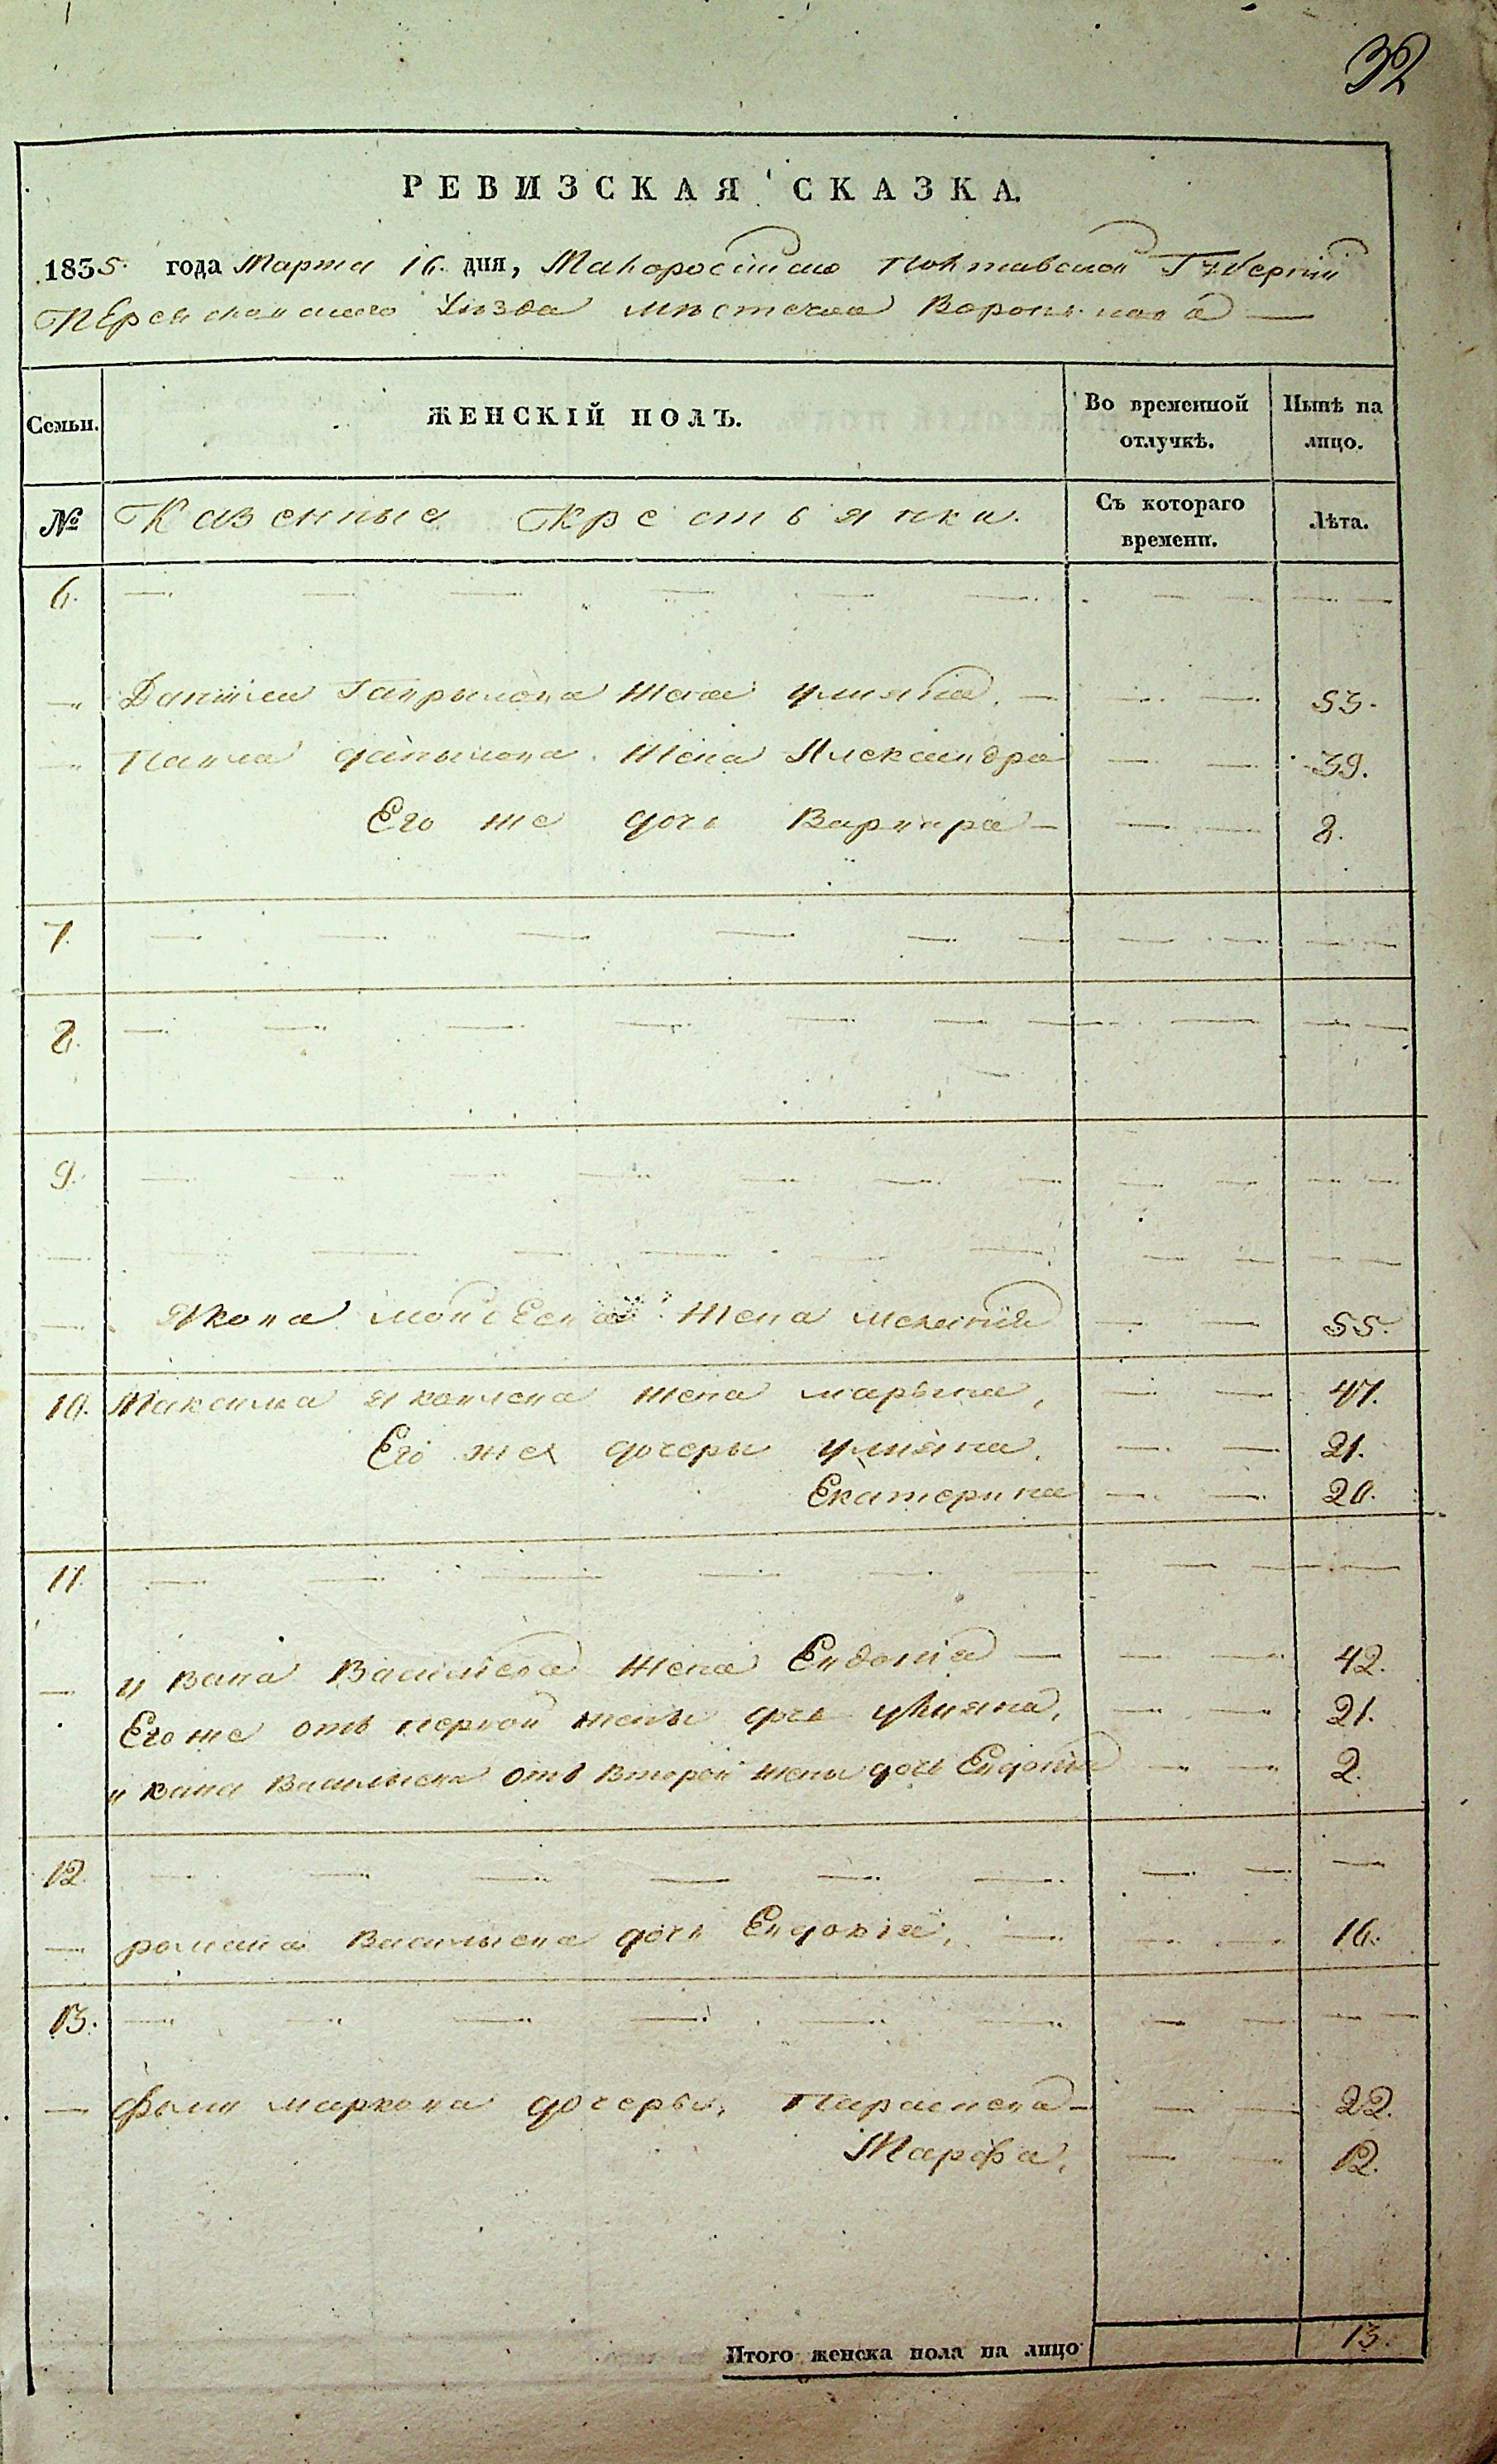 32
РЕВИЗСКАЯ СКАЗКА.
1835. года Марта 16. дня, Малороссійско Полтавской Губерніи
Уѣзда мѣстечка Воронькова —
Семьи. ЖЕНСКІЙ ПОЛЪ. Во временной отлучкѣ. Нынѣ на лицо.
№ Казенные Крестьянки. Съ котораго времени. Лѣта.
6. — — — — — — — — — —
— Данила Гаврылова жена улияна. — — — 53.
— Павла данылова жена Александра — — 39.
Его же дочь Варвара — — — 8.
7. — — — — — — — — — —
8. — — — — — — — — — —
9. — — — — — — — — — — —
— — — — — — — — — — —
— Якова мойсеева жена мелания — — 55.
10. Максима яковлева жена марына, — — 47.
Его же дочеры улияна. — — 21.
Екатерина — — 20.
11. — — — — — — — — —
— ивана Василиева жена Евдокіа — — — 42.
Его же отъ первой жены дочь улияна, — — 21.
ивана васильева отъ второй жены дочь Евдокіа — — 2.
12. — — — — — — — — —
— романа васильева дочь Евдокія, — — — 16.
13. — — — — — — — — — —
— маркова дочеры, Параскева — — — 22.
Марфа, — — 12.
Итого женска пола на лицо 13.